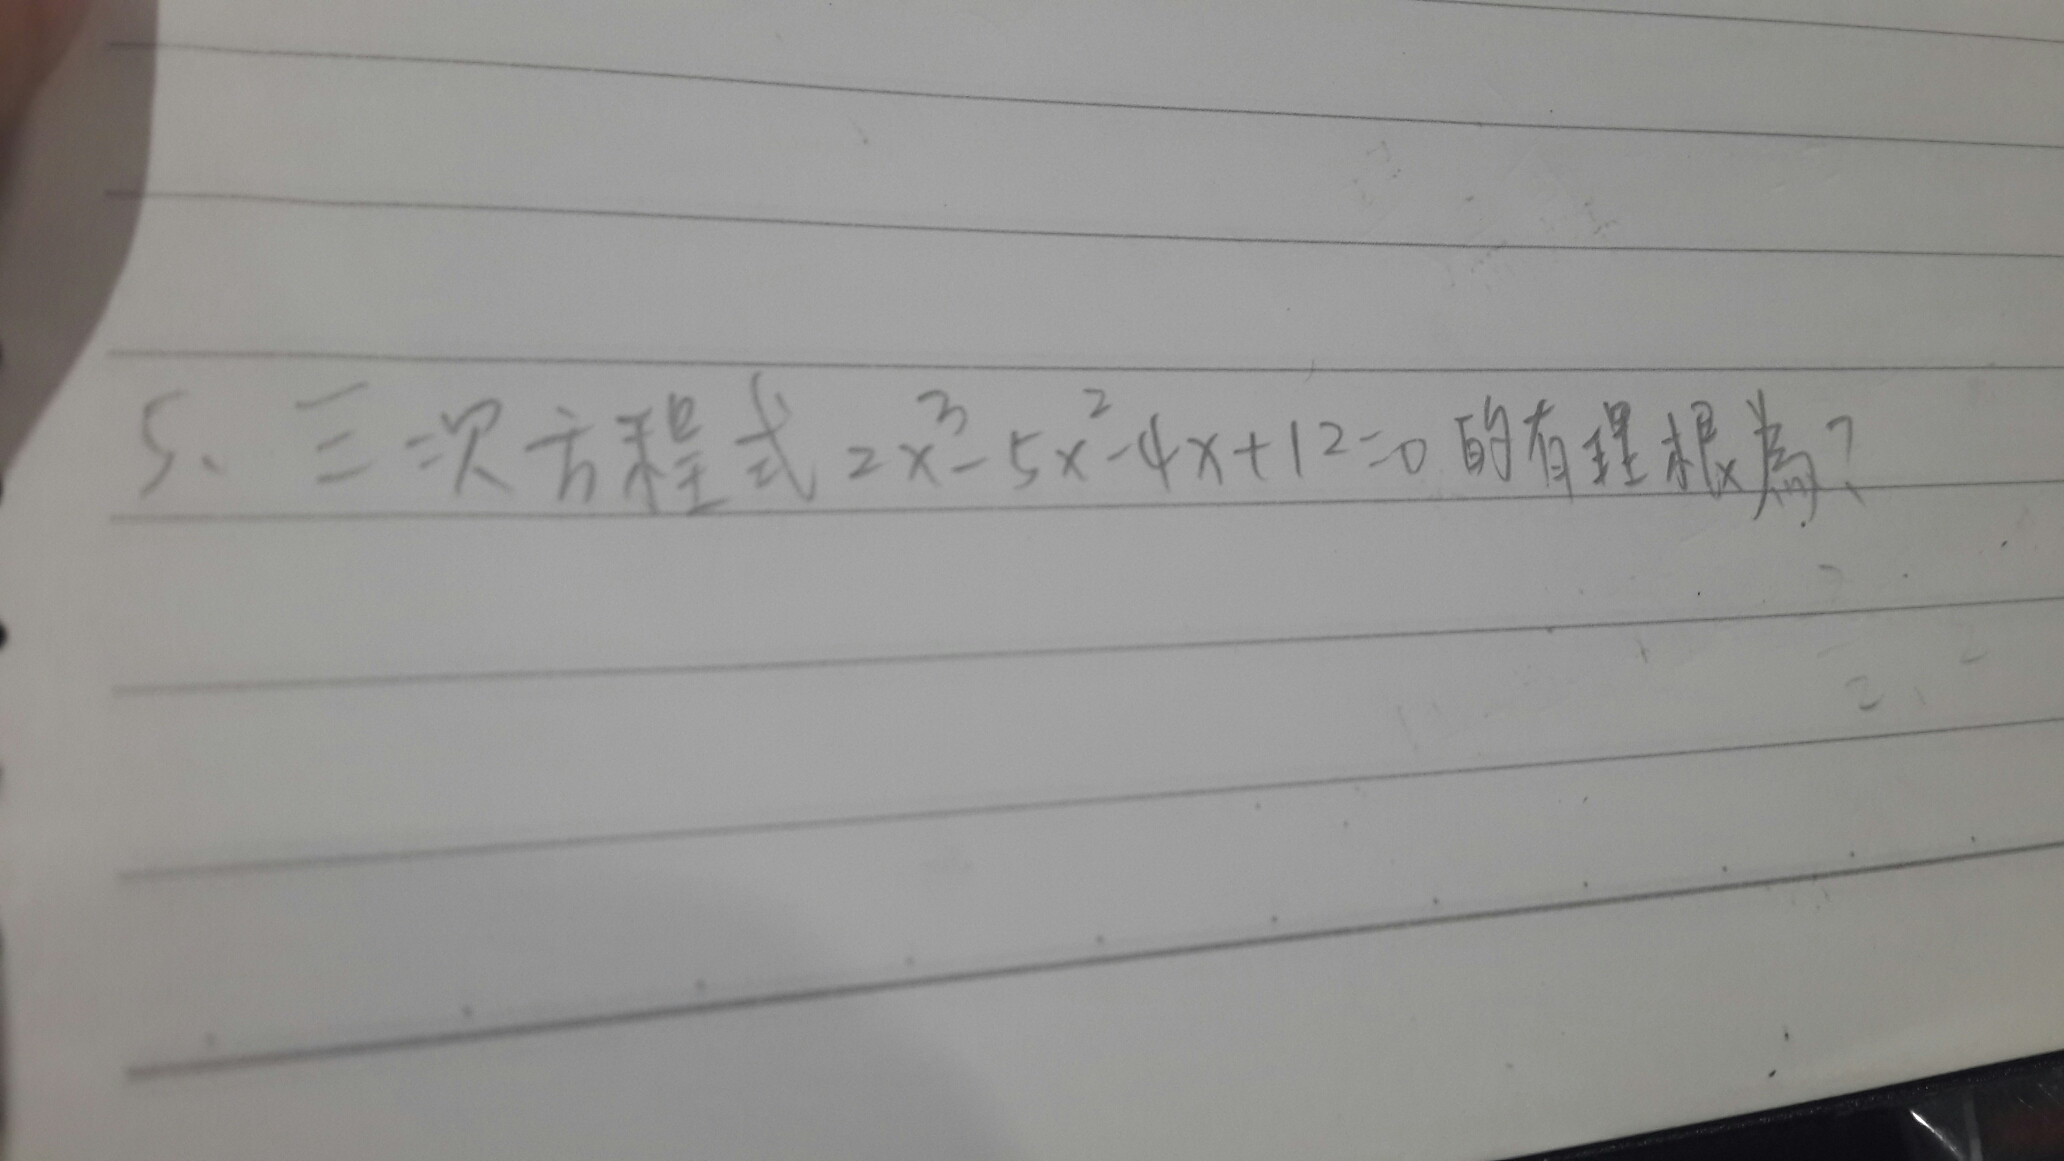 5、三次方程式2x³-5x²-4x+12=0的有理根x為?